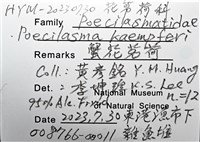 HYM-20230730 花茗荷科
Family Poecilasmatidae
Poecilasma kaempferi
Remarks 蟹花茗荷
Coll.: 黃彥銘 Y. M. Huang
Det.: 李坤瑄 K.S. Lee
National Museum n.=12
95% Alc. of Natural Science
Date 2023.7.30 東港漁市下
008766-00011 雜魚堆